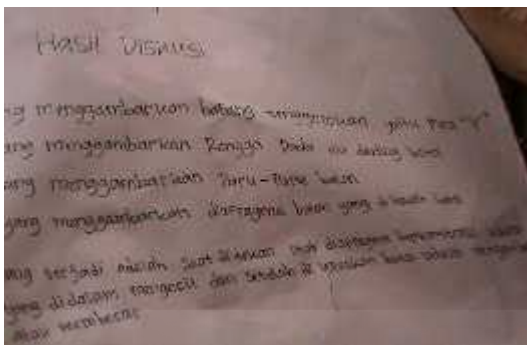 Hasil Diskusi
ng menggambarkan batang tenggorokan yaitu Pipa "Y"
ang menggambarkan Rongga Dada itu
ang menggambarkan Paru-Paru balon
yang menggambarkan diafragma balon yang di bawah
ang terjadi adalah saat diafragma
yang didalam mengecil dan setelah di balon
akan membesar